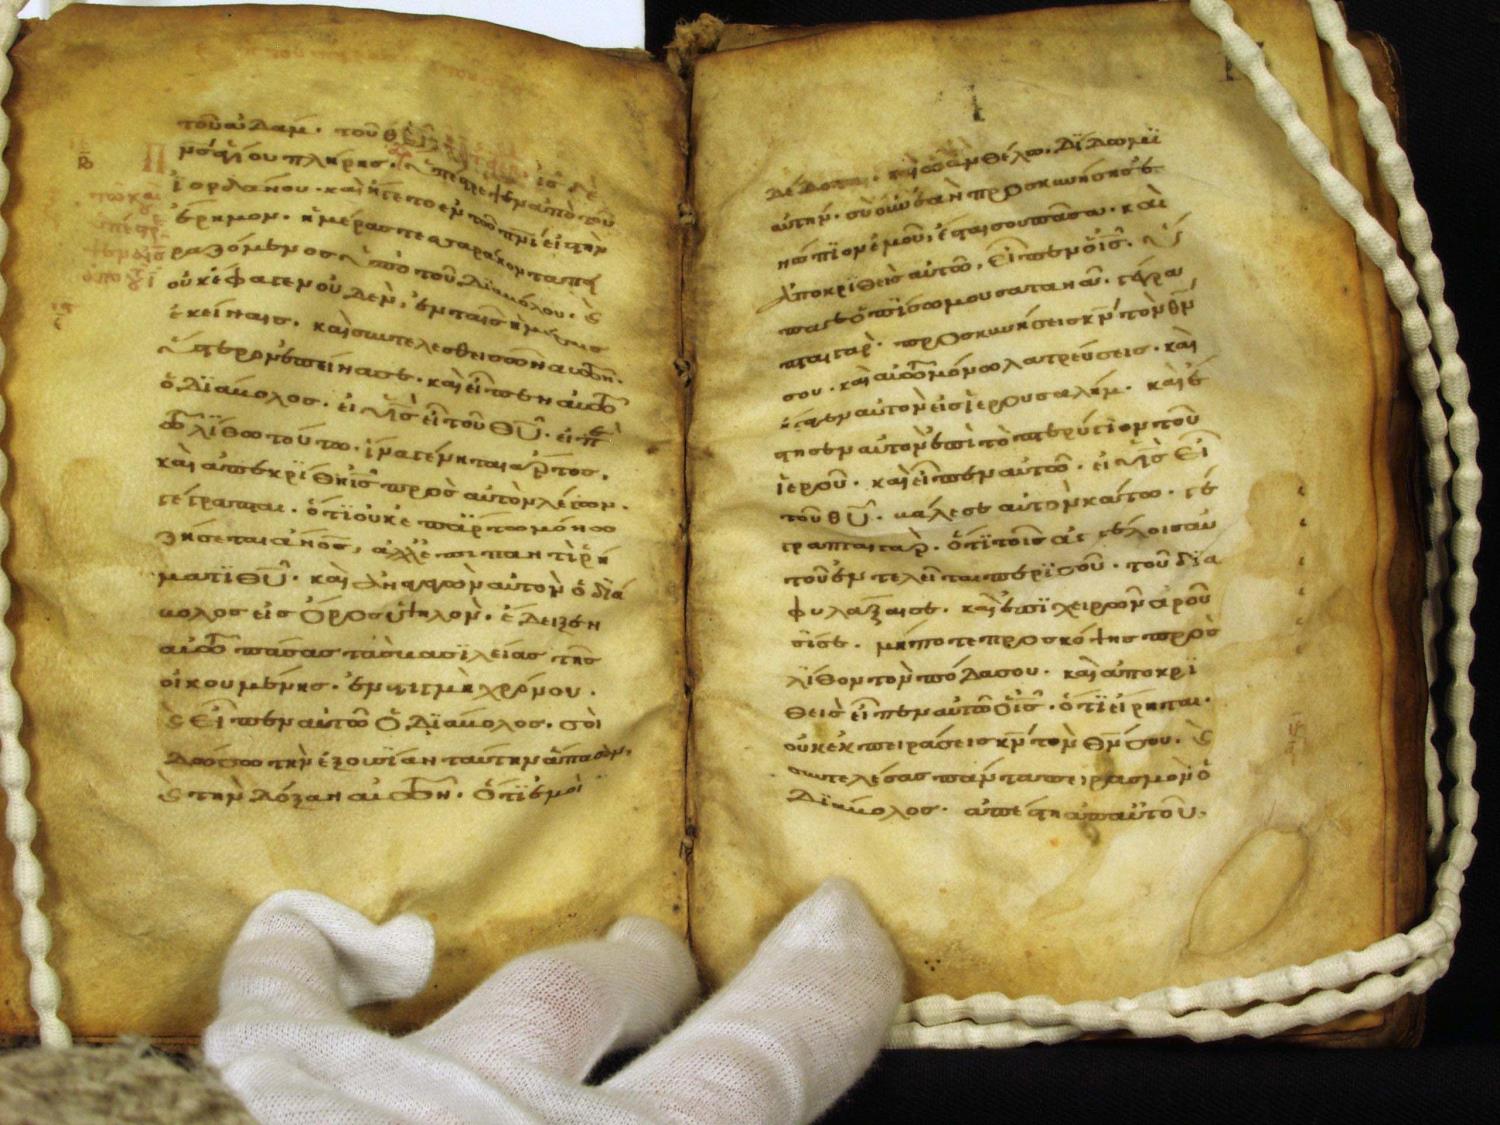 τοῦ ἀδάμ· τοῦ θῦ
πνς ἁγίου πλήρης· ὑπέστρεψεν ἀπὸ τοῦ
ἰορδάνου· καὶ ἤγετο ἐν τῶ πνι εἰς τὴν
ἔρημον· ἡμέρας τεσσαράκοντα πει
ραζόμενος ὑπὸ τοῦ διαβόλου· καὶ
οὐκ ἔφαγεν οὐδὲν, ἐν ταῖς ἡμέραις
ἐκείναις. καὶ συντελεσθεισῶν αὐτῶν·
ὕστερον ἐπείνασε· καὶ εἶπεν αὐτῶ
ὁ διάβολος· εἰ υἱὸς εἶ τοῦ θῦ· εἰπὲ
τῶ λίθω τούτω. ἵνα γένηται ἄρτος.
καὶ ἀπεκρίθη ις πρὸς αὐτὸν λέγων.
γέγραπται. ὅτι οὐκ ἐπ' ἄρτω μόνω
ζήσεται ἄνος, ἀλλ' ἐπι παντὶ ῥή
ματι θῦ· καὶ ἀναγαγὼν αὐτὸν ὁ διά
βολος εἰς ὄρος ὑψηλὸν. ἔδειξεν
αὐτῶ πάσας τὰς βασιλείας τῆς
οἰκουμένης· ἐν στιγμῆ χρόνου.
καὶ εἶπεν αὐτῶ ὁ διάβολος. σοὶ
δώσω τὴν ἐξουσίαν ταύτην ἅπασαν.
καὶ τὴν δόξαν αὐτῶν. ὅτι ἐμοὶ
δέδοται. καὶ ὧ ἐὰν θέλω. δίδωμι
αὐτὴν. σὺ οὖν ἐὰν προσκυνήσης ἐ
νώπιον ἐμοῦ, ἔσται σου πᾶσα. καὶ
ἀποκριθεὶς αὐτῶ, εἶπεν ὁ ις. ὕ
παγε ὀπίσω μου σατανᾶ. γέγρα
πται γάρ. προσκυνήσεις κν τὸν θν
σου. καὶ αὐτῶ μόνω λατρεύσεις. καὶ
ἤγαγεν αὐτὸν εἰς ἱερουσαλήμ. καὶ ἔ
στησεν αὐτὸν ἐπὶ τὸ πτερύγιον τοῦ
ἱεροῦ. καὶ εἶπεν αὐτῶ. εἰ υἱὸς εἶ
τοῦ θῦ. βάλε σεαυτὸν κάτω. γέ
γραπται γάρ. ὅτι τοῖς ἀγγέλοις αὐ
τοῦ ἐντελεῖται περὶ σοῦ. τοῦ δια
φυλάξαι σε. καὶ ἐπι χειρῶν ἀροῦ
σί σε. μήποτε προσκόψης πρὸς
λίθον τὸν πόδα σου. καὶ ἀποκρι
θεὶς εἶπεν αὐτῶ ὁ ις. ὅτι εἴρηται.
οὐκ ἐκπειράσεις κν τὸν θν σου. καὶ
συντελέσας πάντα πειρασμὸν ὁ
διάβολος. ἀπέστη ἀπ' αὐτοῦ.